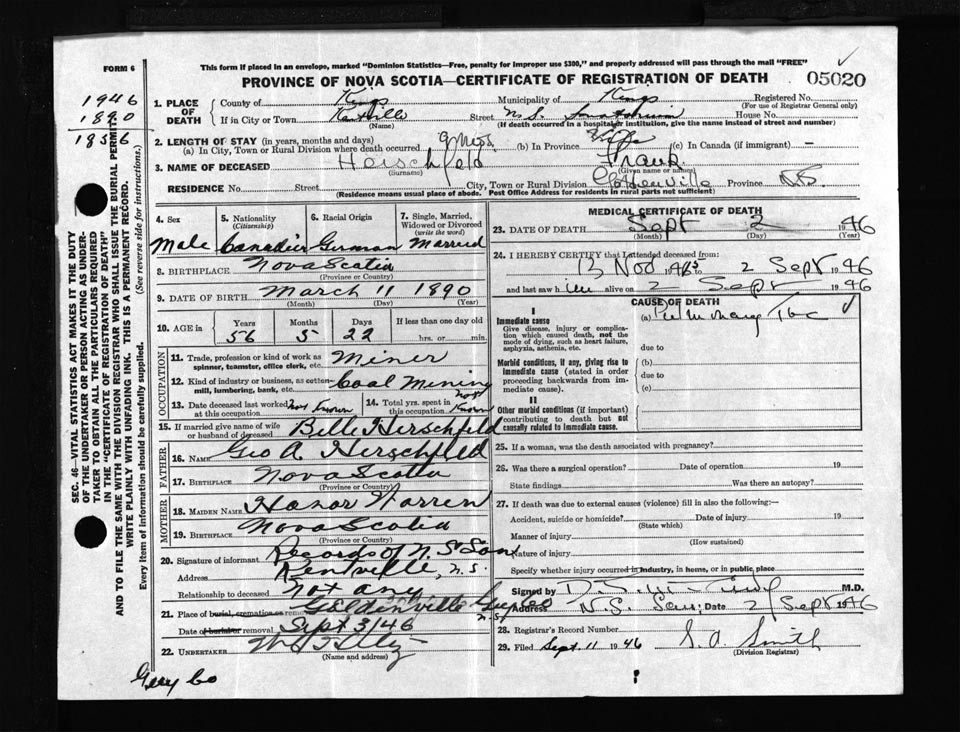 FORM 6
This form if placed in an envelope, marked "Dominion Statistics—Free, penalty for improper use $300," and properly addressed will pass through the mail "FREE"
PROVINCE OF NOVA SCOTIA—CERTIFICATE OF REGISTRATION OF DEATH 05020
1946
1890
1856
1. PLACE OF DEATH
County of Kings Municipality of Kings Registered No.
(For use of Registrar General only)
If in City or Town Kentville Street N.S. Sanatorium House No.
(Name) (If death occurred in a hospital or institution, give the name instead of street and number)
2. LENGTH OF STAY (in years, months and days)
(a) In City, Town or Rural Division where death occurred 9 mos. (b) In Province Life (c) In Canada (if immigrant) —
3. NAME OF DECEASED Herschfeld Frank
(Surname) (Given name or names)
RESIDENCE No. Street City, Town or Rural Division Goldenville Province N.S.
(Residence means usual place of abode. Post Office Address for residents in rural parts not sufficient)
4. Sex
Male
5. Nationality
(Citizenship)
Canadian
6. Racial Origin
German
7. Single, Married, Widowed or Divorced
(write the word)
Married
8. BIRTHPLACE Nova Scotia
(Province or Country)
9. DATE OF BIRTH March 11 1890
(Month) (Day) (Year)
10. AGE in Years Months Days If less than one day old
56 5 22 hrs. or min.
OCCUPATION
11. Trade, profession or kind of work as spinner, teamster, office clerk, etc. Miner
12. Kind of industry or business, as cotton-mill, lumbering, bank, etc. Coal Mining
13. Date deceased last worked at this occupation Not Known
14. Total yrs. spent in this occupation not Known
15. If married give name of wife or husband of deceased Belle Herschfeld
FATHER
16. NAME Geo A. Herschfeld
17. BIRTHPLACE Nova Scotia
(Province or Country)
MOTHER
18. MAIDEN NAME Honor Warren
19. BIRTHPLACE Nova Scotia
(Province or Country)
20. Signature of informant Records of N. S. San
Address Kentville, N.S.
Relationship to deceased Not any
21. Place of burial, cremation or removal Goldinville Guy Co N.S.
Date of burial or removal Sept 3/46
22. UNDERTAKER
(Name and address)
Guy Co
MEDICAL CERTIFICATE OF DEATH
23. DATE OF DEATH Sept 2 1946
(Month) (Day) (Year)
24. I HEREBY CERTIFY that I attended deceased from:
13 Nov 1945 to 2 Sept 1946
and last saw him alive on 2 Sept 1946
CAUSE OF DEATH
I
Immediate cause
Give disease, injury or complication which caused death, not the mode of dying, such as heart failure, asphyxia, asthenia, etc.
(a) Pulmonary Tbc
due to
Morbid conditions, if any, giving rise to immediate cause (stated in order proceeding backwards from immediate cause).
(b)
due to
(c)
II
Other morbid conditions (if important) contributing to death but not causally related to immediate cause.
25. If a woman, was the death associated with pregnancy?
26. Was there a surgical operation? Date of operation 19
State findings Was there an autopsy?
27. If death was due to external causes (violence) fill in also the following:—
Accident, suicide or homicide? Date of injury 19
(State which)
Manner of injury
(How sustained)
Nature of injury
Specify whether injury occurred in industry, in home, or in public place
Signed by M.D.
Address N.S. San: Date 2 Sept 1946
28. Registrar's Record Number
29. Filed Sept. 11 1946 S. A. Smith
(Division Registrar)
SEC. 46—VITAL STATISTICS ACT MAKES IT THE DUTY
OF THE UNDERTAKER OR PERSON ACTING AS UNDER-
TAKER TO OBTAIN ALL THE PARTICULARS REQUIRED
IN THE "CERTIFICATE OF REGISTRATION OF DEATH"
AND TO FILE THE SAME WITH THE DIVISION REGISTRAR WHO SHALL ISSUE THE BURIAL PERMIT.
WRITE PLAINLY WITH UNFADING INK. THIS IS A PERMANENT RECORD.
Every item of information should be carefully supplied. (See reverse side for instructions.)